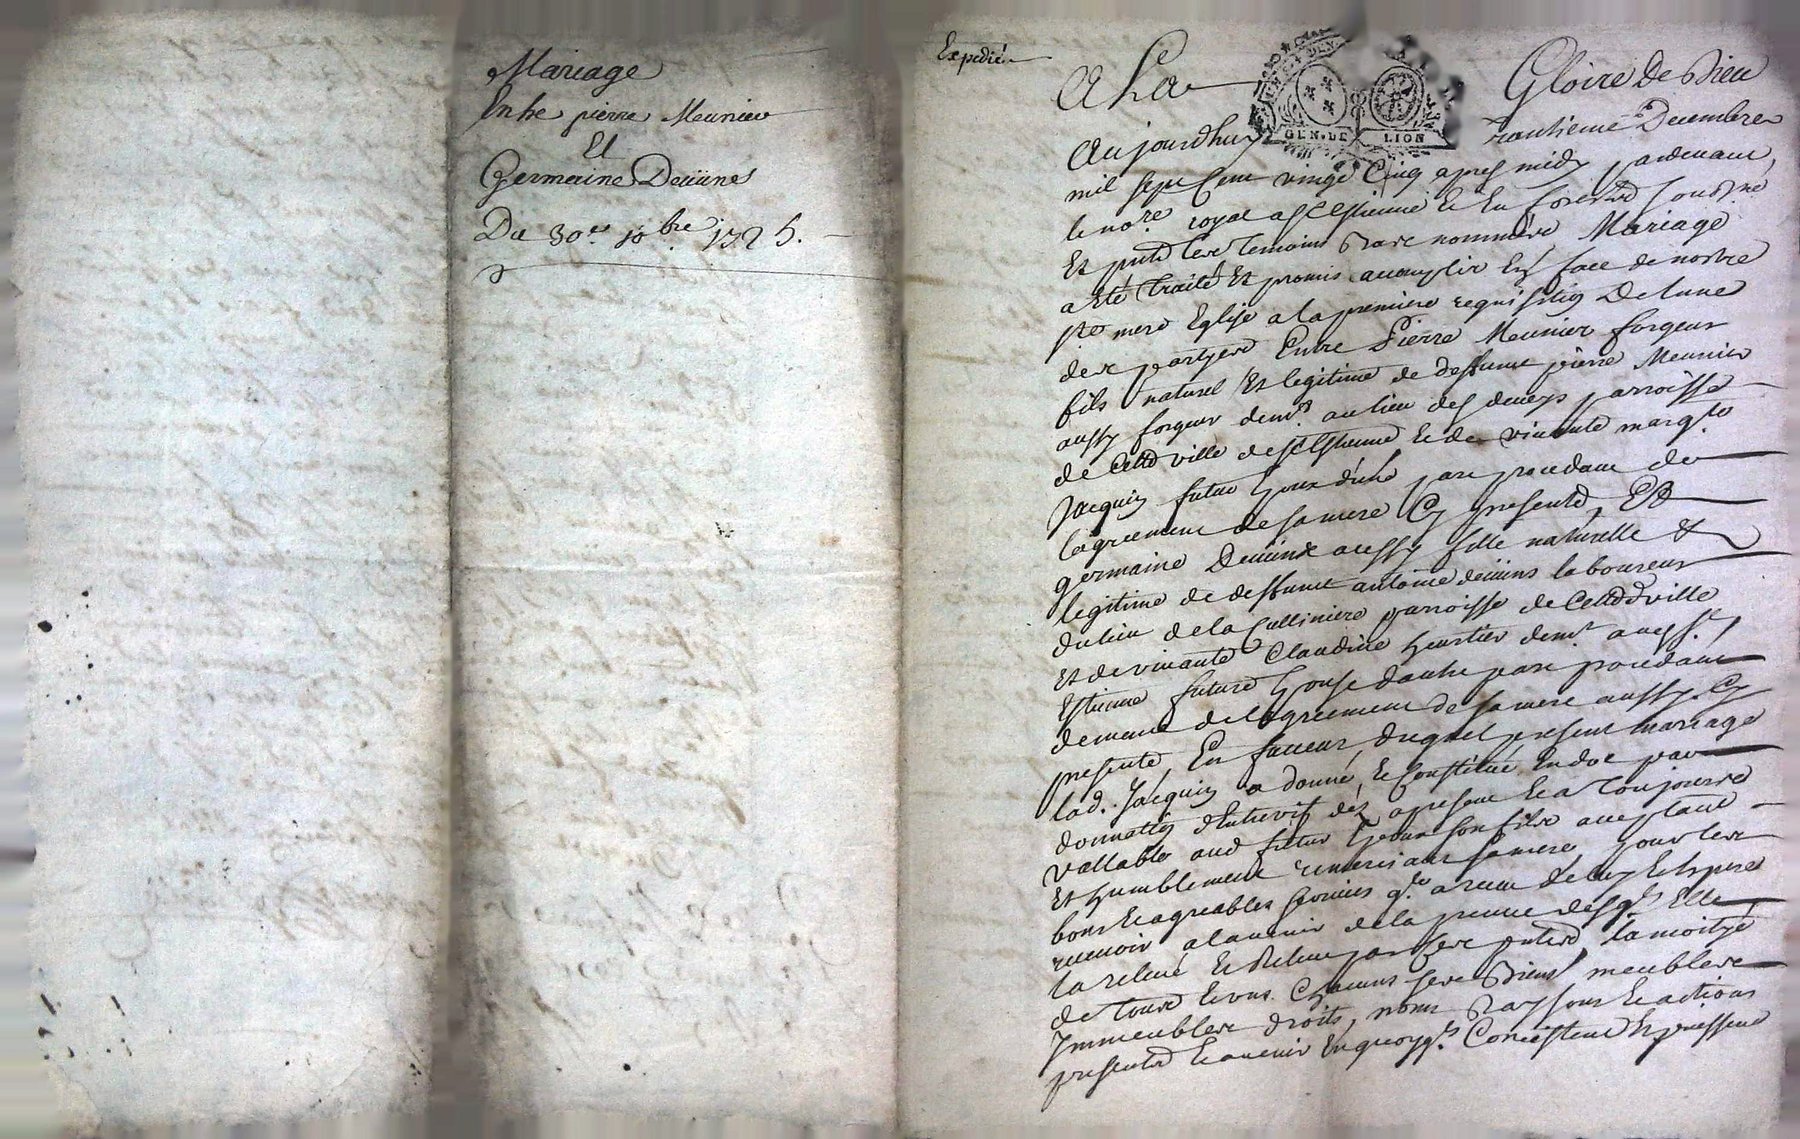 Mariage
Entre pierre Meunier
Et
Germaine Deuuns
Du 30e. 10bre 1725.
Expedié
A La Gloire de Dieu
GEN. DE LION
Aujourdhuy trantieme Decembre
mil sept Cent vingt Cinq apres midy pardevant
le nore. royal a St Estienne et en forestz soubne
Et pntz les temoins bas nommés Mariage
a Eté traité Et promis accomplir En face de nostre
ste mere Eglise a la premiere requisition De lune
des partyes Entre Pierre Meunier forgeur
fils naturel Et legitime de deffunt pierre Meunier
aussy forgeur demt. au lieu des parroisse
de Cette ville de St Estienne et de vivante margte
Jacquin futur Epoux dune part procedant de
lagreement de sa mere Cy presente, Et
germaine Deuuns aussy fille naturelle &
legitime de deffunt antoine deuuns laboureur
du lieu de la parroisse de Cette ville
Et de vivante Claudine heurtier demt. aud St.
Estienne future Epouse dautre part procedant
dememe de lagreement de sa mere aussy Cy
presente, En faveur duquel present mariage
lad. Jacquin a donné et Constitué En dot par
donnation dentrevifs des apresent et a toujours
vallable aud futur Epoux son fils acceptant
Et humblement remerciant sa mere pour les
bons et agreables services qle. a receu de luy et Espere
recevoir a lavenir de la preuve desqls Elle
la relevé et releve par ces pntes, la moityé
de tous et uns Chacuns ses Biens meubles
Immeubles droits, noms Raysons et actions
presents et avenir En quoy qls. Concistent Et puissent